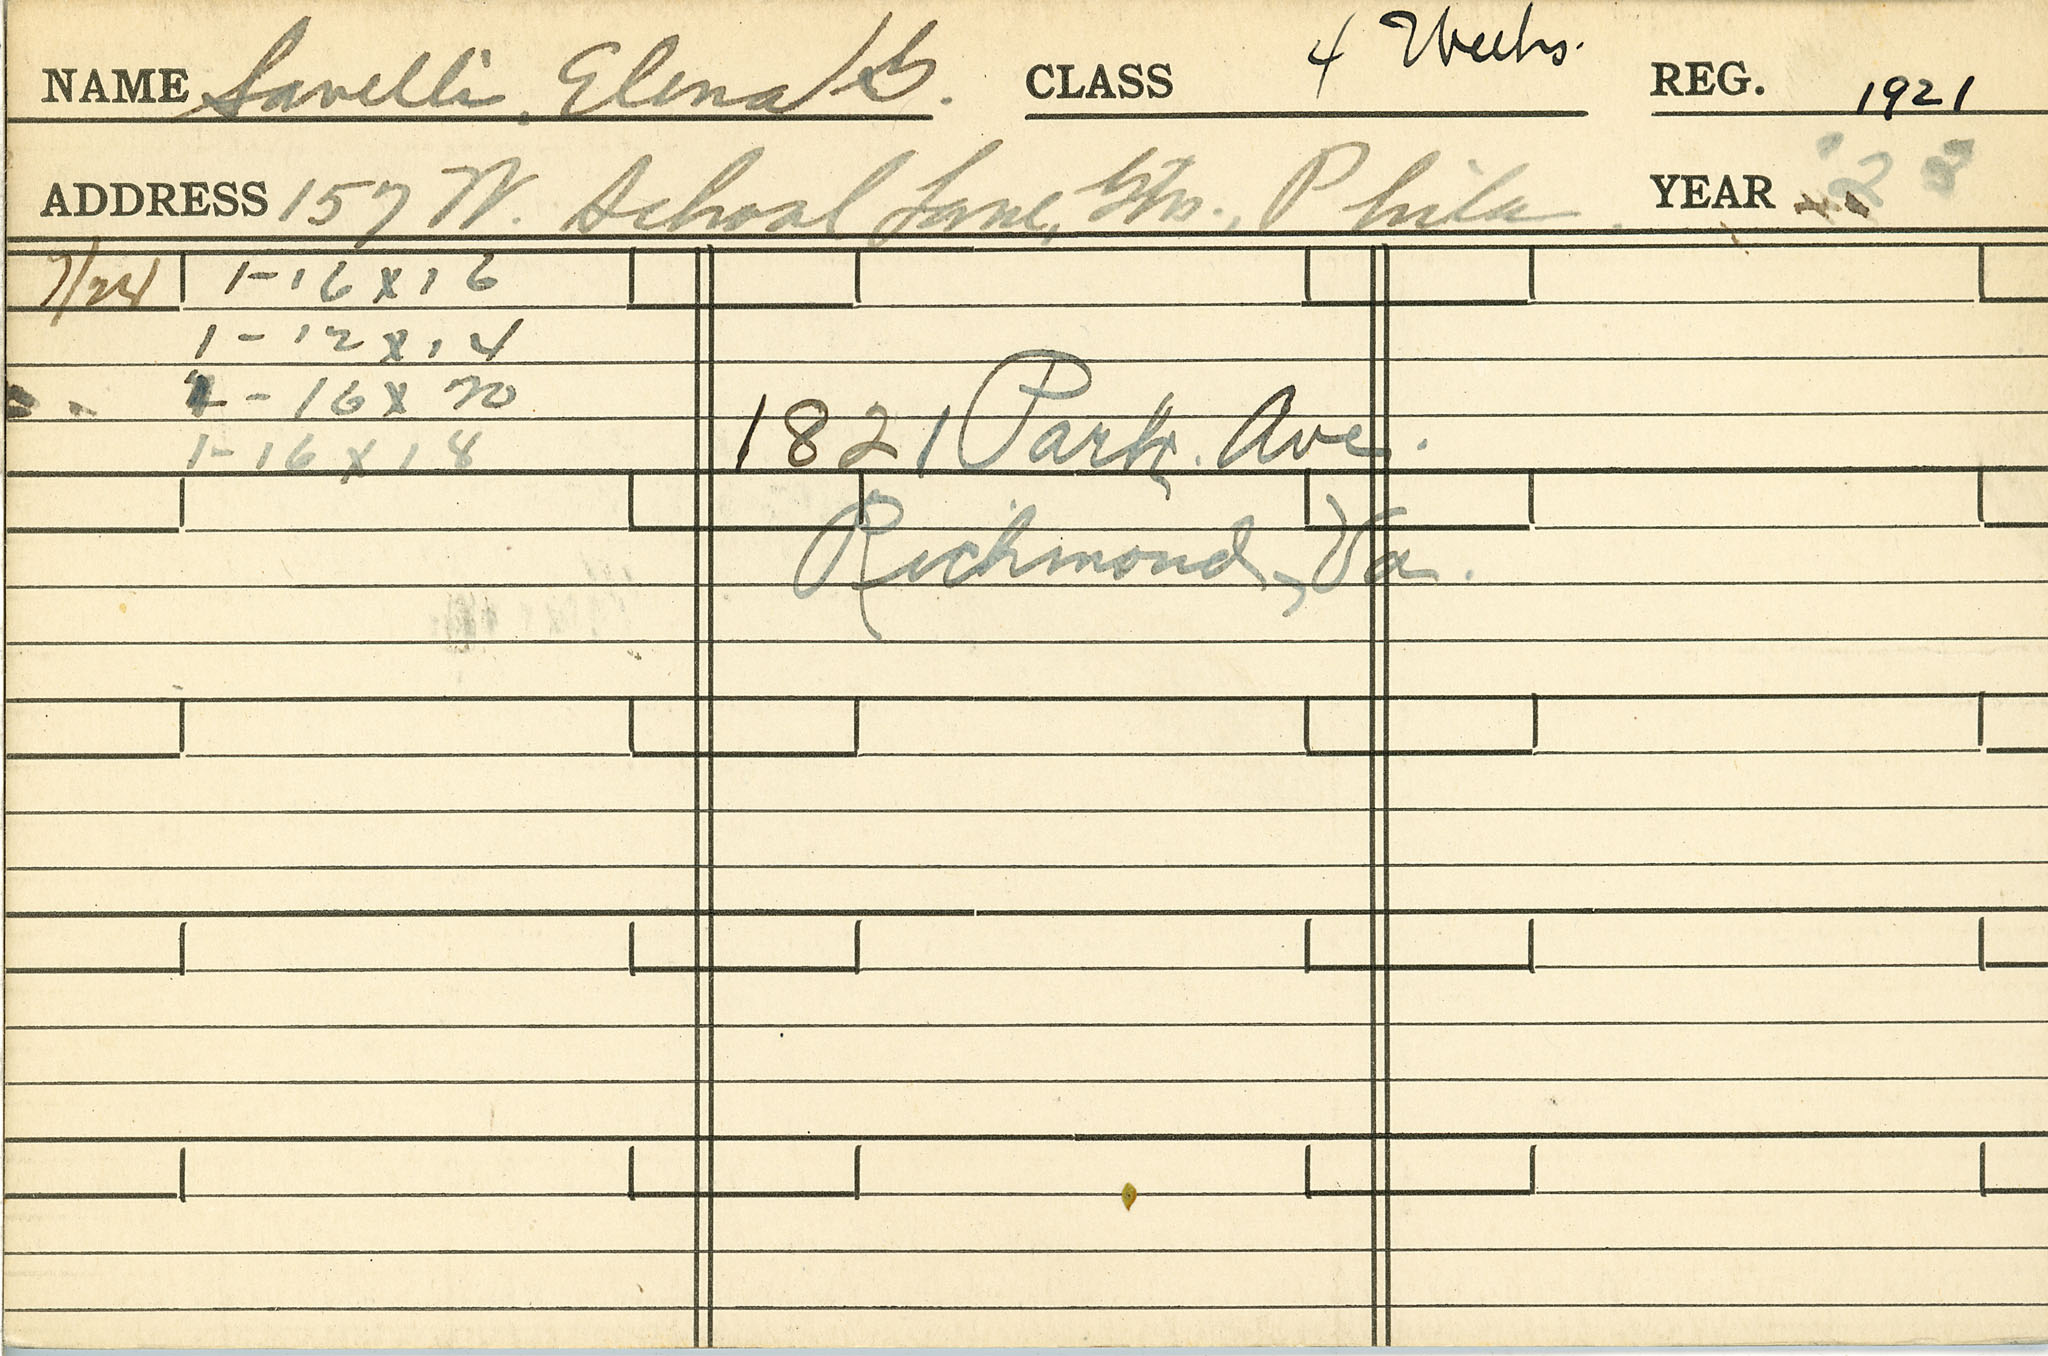 NAME Savelli, Elena G. CLASS 4 Weeks. REG. 1921
ADDRESS 157 W. School Lane, Gtn., Phila. YEAR
7/24 1-16x16
1-12x14
- 16x20
1-16x18
1821 Park Ave.
Richmond, Va.